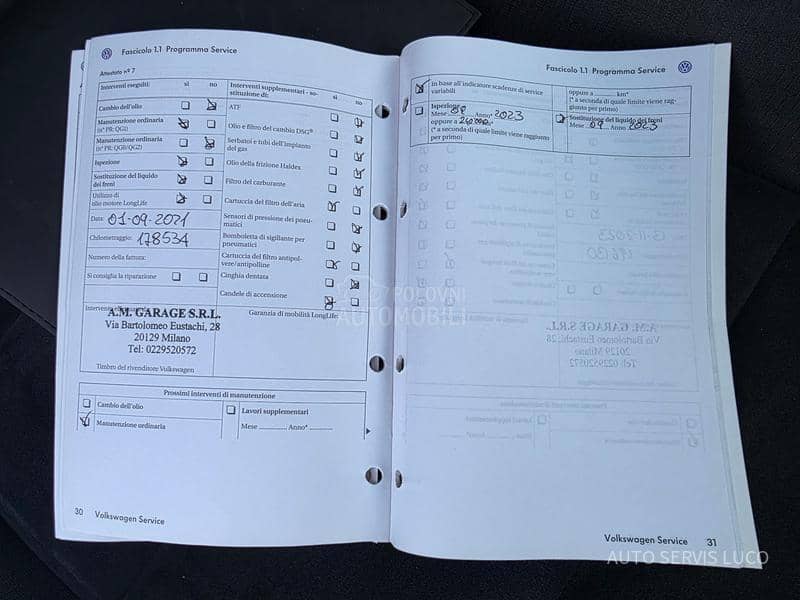 Fascicolo 1.1 Programma Service
Attestato n° 7
Interventi eseguiti: sì no
Cambio dell'olio
Manutenzione ordinaria
(n° PR: QG1)
Manutenzione ordinaria
(n° PR: QG0/QG2)
Ispezione
Sostituzione del liquido
dei freni
Utilizzo di
olio motore LongLife
Data: 01-09-2021
Chilometraggio: 178534
Numero della fattura:
Si consiglia la riparazione
Interventi supplementari - so-
stituzione di: sì no
ATF
Olio e filtro del cambio DSG®
Serbatoi e tubi dell'impianto
del gas
Olio della frizione Haldex
Filtro del carburante
Cartuccia del filtro dell'aria
Sensori di pressione dei pneu-
matici
Bomboletta di sigillante per
pneumatici
Cartuccia del filtro antipol-
vere/antipolline
Cinghia dentata
Candele di accensione
A.M. GARAGE S.R.L.
Via Bartolomeo Eustachi, 28
20129 Milano
Tel: 0229520572
Timbro del rivenditore Volkswagen
Garanzia di mobilità LongLife:
Prossimi interventi di manutenzione
Cambio dell'olio
Manutenzione ordinaria
Lavori supplementari
Mese Anno*
30 Volkswagen Service
Fascicolo 1.1 Programma Service
In base all'indicatore scadenze di service
variabili
Ispezione
Mese 09 Anno* 2023
oppure a
(* a seconda di quale limite viene raggiunto
per primo)
oppure a km*
(* a seconda di quale limite viene rag-
giunto per primo)
Sostituzione del liquido dei freni
Mese 09 Anno 2023
Volkswagen Service 31
POLOVNI
AUTOMOBILI
AUTO SERVIS LUCO